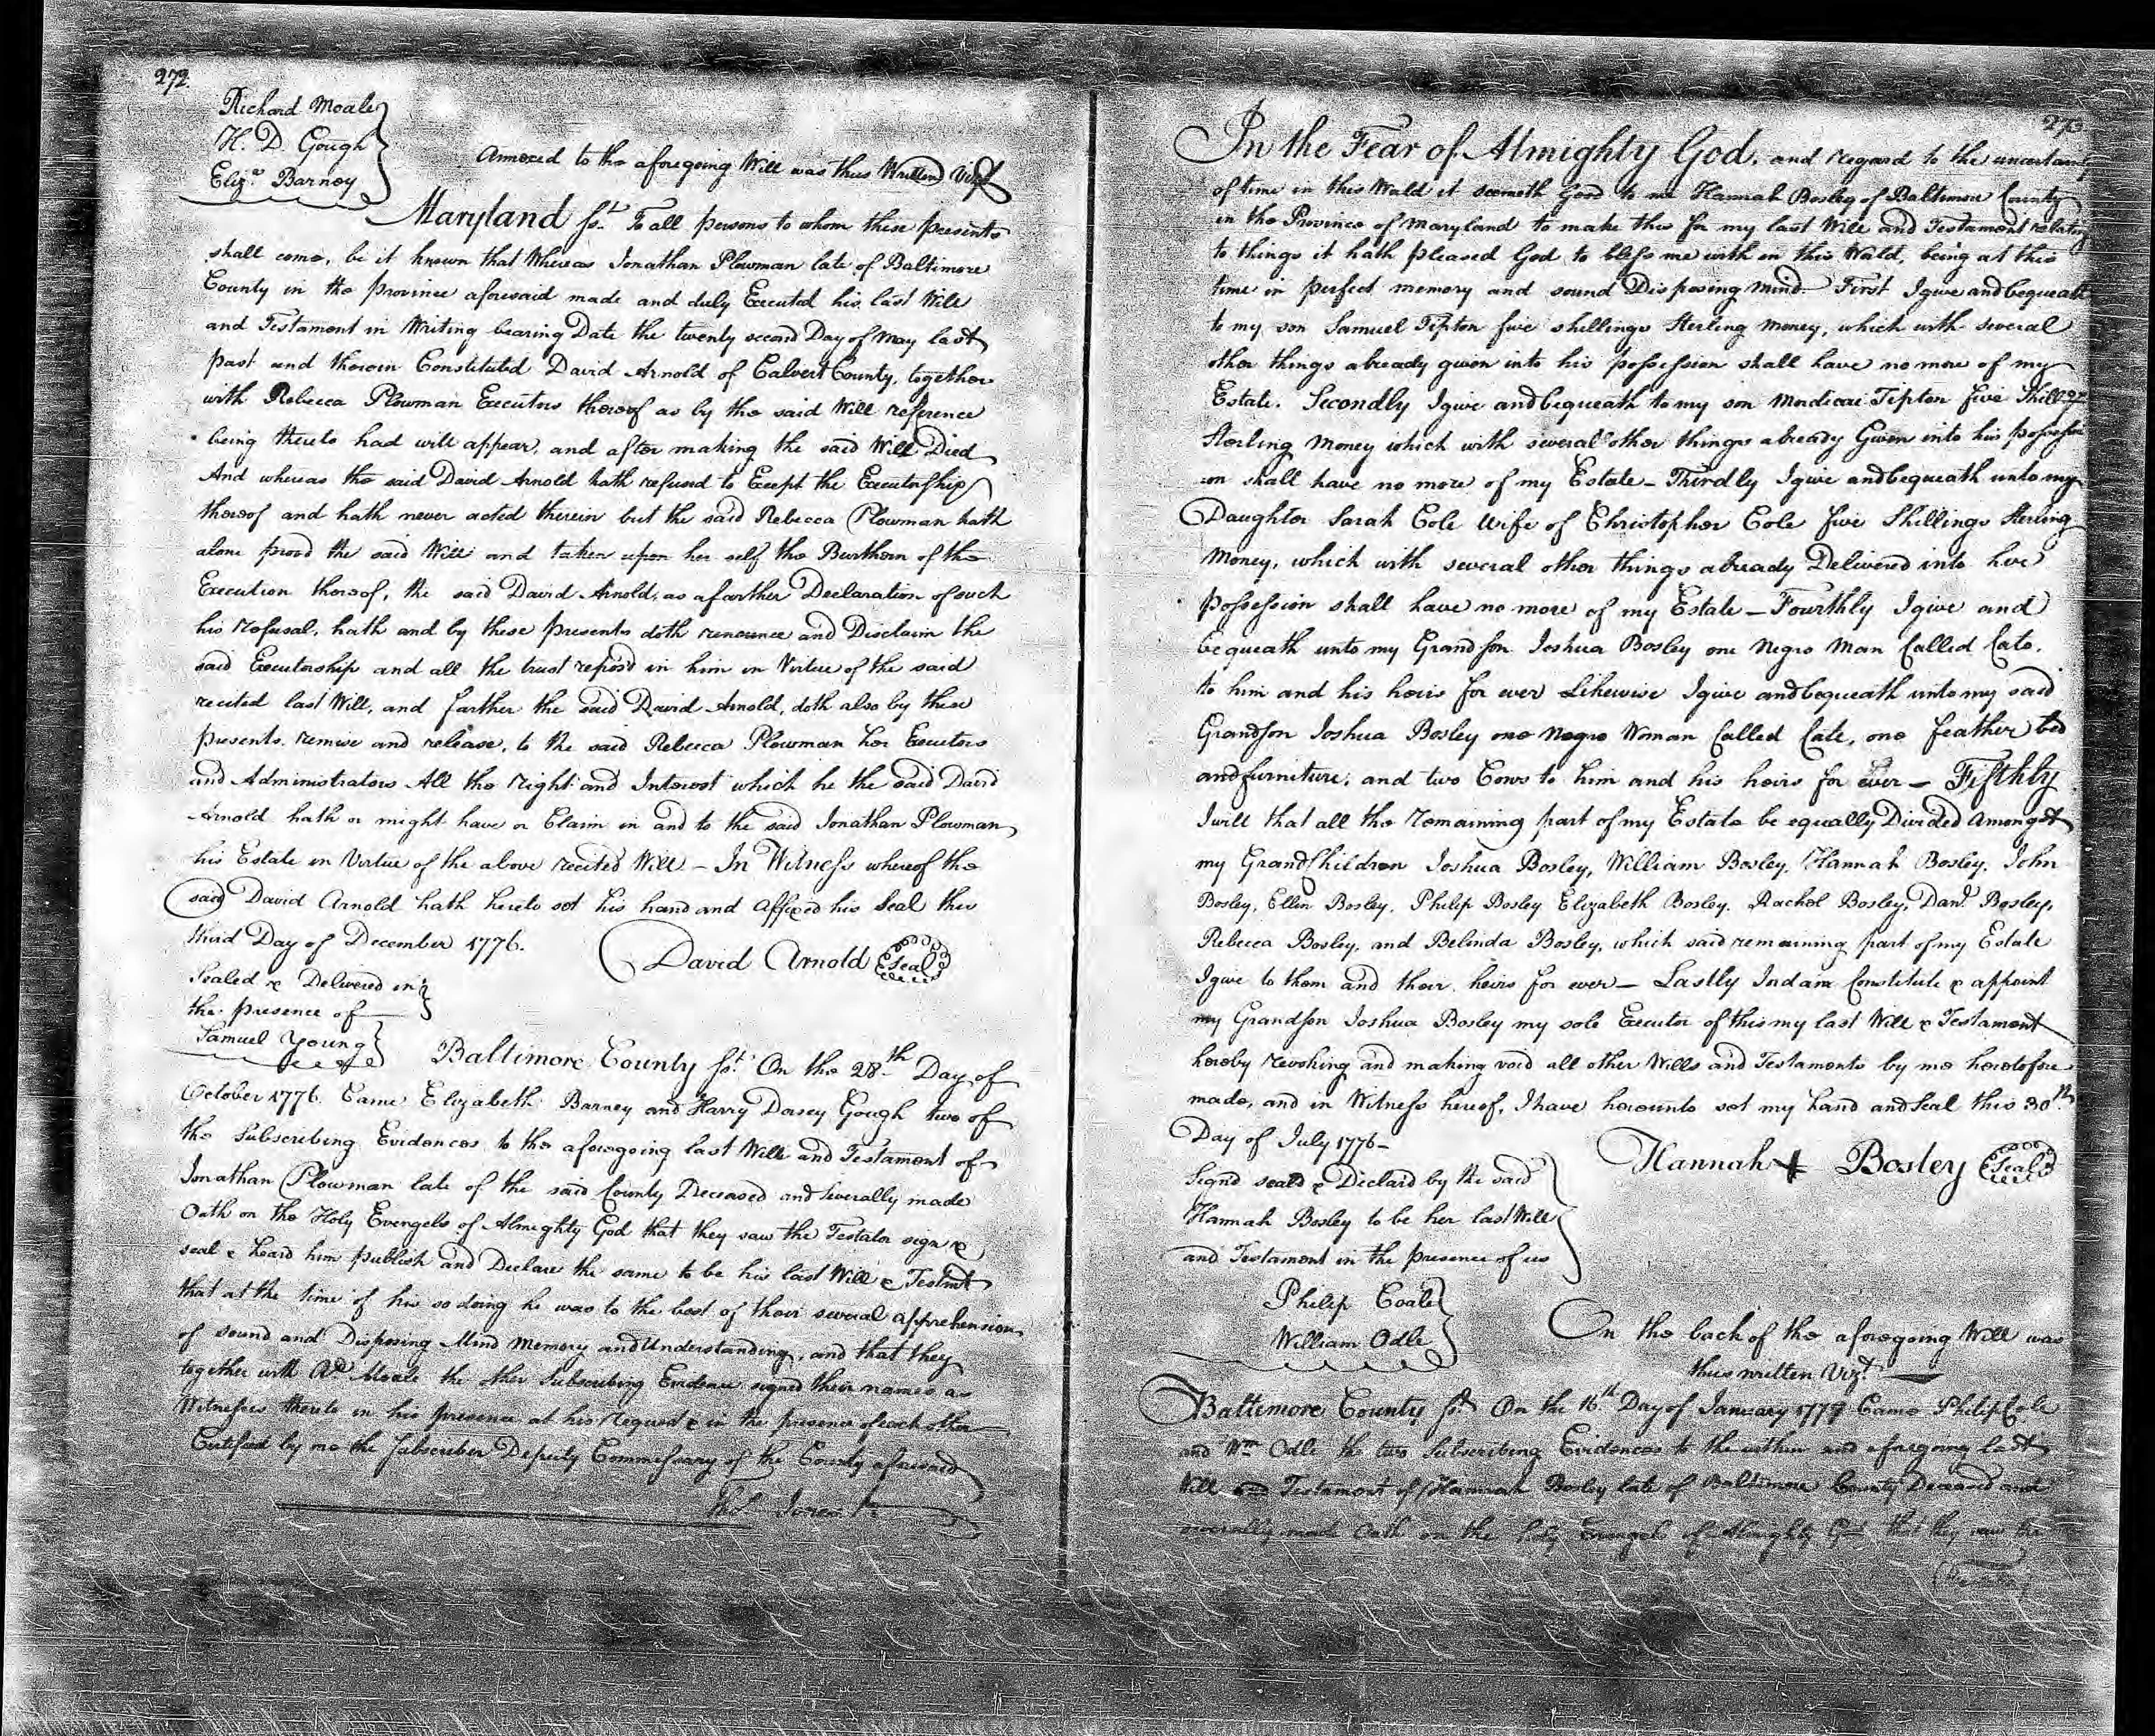 272.
Richard Moale
H. D. Gough
Eliz.a Barney
Annexed to the aforegoing Will was thus Written Vizt
Maryland ss.t To all persons to whom these presents
shall come, be it known that Whereas Jonathan Plowman late of Baltimore
County in the province aforesaid made and duly Executed his last Will
and Testament in Writing bearing Date the twenty second Day of May last
past and therein Constituted David Arnold of Calvert County, together
with Rebecca Plowman Executors thereof as by the said Will reference
being thereto had will appear, and after making the said Will Died
And whereas the said David Arnold hath refused to Except the Executorship
thereof and hath never acted therein but the said Rebecca Plowman hath
alone prov'd the said Will and taken upon her self the Burthern of the
Execution thereof, the said David Arnold, as a farther Declaration of such
his refusal, hath and by these presents doth renounce and Disclaim the
said Executorship and all the trust repos'd in him in Virtue of the said
recited last Will, and farther the said David Arnold, doth also by these
presents remise and release, to the said Rebecca Plowman her Executors
and Administrators All the right and Interest which he the said David
Arnold hath or might have or Claim in and to the said Jonathan Plowman
his Estate in Virtue of the above recited Will - In Witness whereof the
said David Arnold hath hereto set his hand and affixed his Seal this
third Day of December 1776.
David Arnold Seal
Sealed & Delivered in
the presence of
Samuel Young
Baltimore County ss.t On the 28th Day of
October 1776. Came Elizabeth Barney and Harry Dorsey Gough two of
the Subscribing Evidences to the aforegoing last Will and Testament of
Jonathan Plowman late of the said County Deceased and severally made
Oath on the Holy Evengels of Almighty God that they saw the Testator sign &
seal & heard him publish and Declare the same to be his last Will & Testmt
that at the time of his so doing he was to the best of their several apprehensions
of sound and Disposing Mind Memory and Understanding, and that they
together with Rd. Moale the other Subscribing Evidence signed their names as
Witnesses thereto in his presence at his request & in the presence of each other
Certified by me the Subscriber Deputy Commissary of the County aforesaid
Thos. Jones
273
In the Fear of Almighty God. and regard to the uncertainty
of time in this Wald it seemeth Good to me Hannah Bosley of Baltimore County
in the Province of Maryland to make this for my last Will and Testament relating
to things it hath pleased God to bless me with in this Wald, being at this
time in perfect memory and sound Disposing mind - First I give and bequeath
to my son Samuel Tipton five shillings sterling money, which with several
other things already given into his possession shall have no more of my
Estate. Secondly I give and bequeath to my son Mordicai Tipton five Shillgs
Sterling Money which with several other things already Given into his possessi
=on shall have no more of my Estate - Thirdly I give and bequeath unto my
Daughter Sarah Cole wife of Christopher Cole five Shillings sterling
money, which with several other things already Delivered into her
possession shall have no more of my Estate - Fourthly I give and
bequeath unto my Grandson Joshua Bosley one Negro Man Called Cato.
to him and his heirs for ever Likewise I give and bequeath unto my said
Grandson Joshua Bosley one Negro Woman Called Cate, one feather bed
and furniture, and two Cows to him and his heirs for Ever - Fifthly
I will that all the remaining part of my Estate be equally Divided Amongst
my GrandChildren Joshua Bosley, William Bosley, Hannah Bosley. John
Bosley, Ellin Bosley. Philip Bosley Elizabeth Bosley. Rachel Bosley, Danl. Bosley,
Rebecca Bosley, and Belinda Bosley, which said remaining part of my Estate
I give to them and their heirs for ever - Lastly I ndain Constitute & appoint
my Grandson Joshua Bosley my sole Executor of this my last Will & Testament
hereby revoking and making void all other Wills and Testaments by me heretofore
made, and in Witness hereof, I have hereunto set my hand and Seal this 30th
Day of July 1776 -
Hannah Bosley Seal
Signd seald & Declard by the said
Hannah Bosley to be her last Will
and Testament in the presence of us
Philip Coale
William Odle
On the back of the aforegoing Will was
thus written Vizt.
Baltimore County ss.t On the 16th Day of January 1777 Came Philip Cole
and Wm Odle the two Subscribing Evidences to the within and aforegoing last
Will and Testament of Hannah Bosley late of Baltimore County Deceased and
severally made Oath on the holy Evangels of Almighty God that they saw the